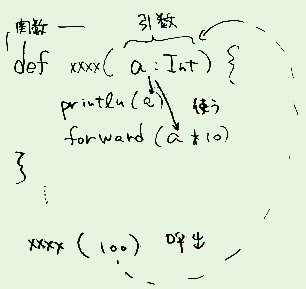 関数 引数
def xxxx( a : Int) {
println(a) 使う
forward (a * 10)
}
xxxx ( 100 ) 呼出